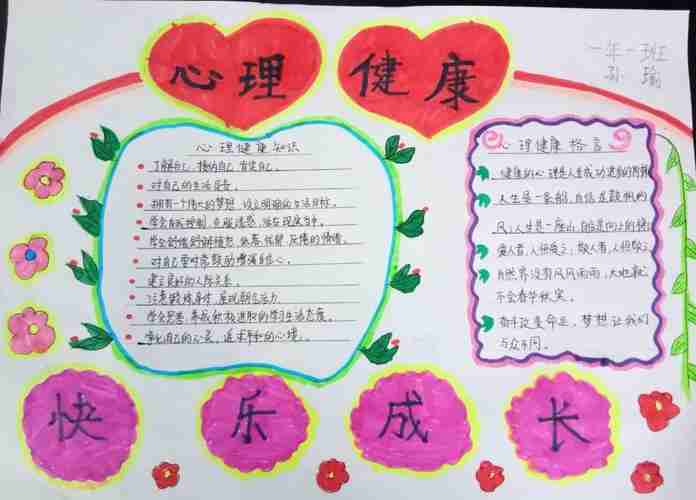 心理
健康
一年一班
孙瑜
心理健康知识
了解自己、接纳自己、肯定自己。
对自己的生活负责。
拥有一个伟大的梦想,设立明确的生活目标。
学会自我控制,克服迷惑,活在现实当中。
对自己要时常鼓励增强自信心。
建立良好的人际关系。
注意锻炼身体,展现朝气活力
学会思考,养成积极进取的学习生活态度。
净化自己的心灵,追求平和的心境。
心理健康格言
健康的心理是人生成功
人生是一条船,自信是鼓帆的
风;人生是一座山,自信是向上的
爱人者,人恒爱之;敬人者,人恒敬之
自然界没有风风雨雨,大地就
不会春华秋实。
奋斗改变命运,梦想让我们
与众不同。
快
乐
成
长